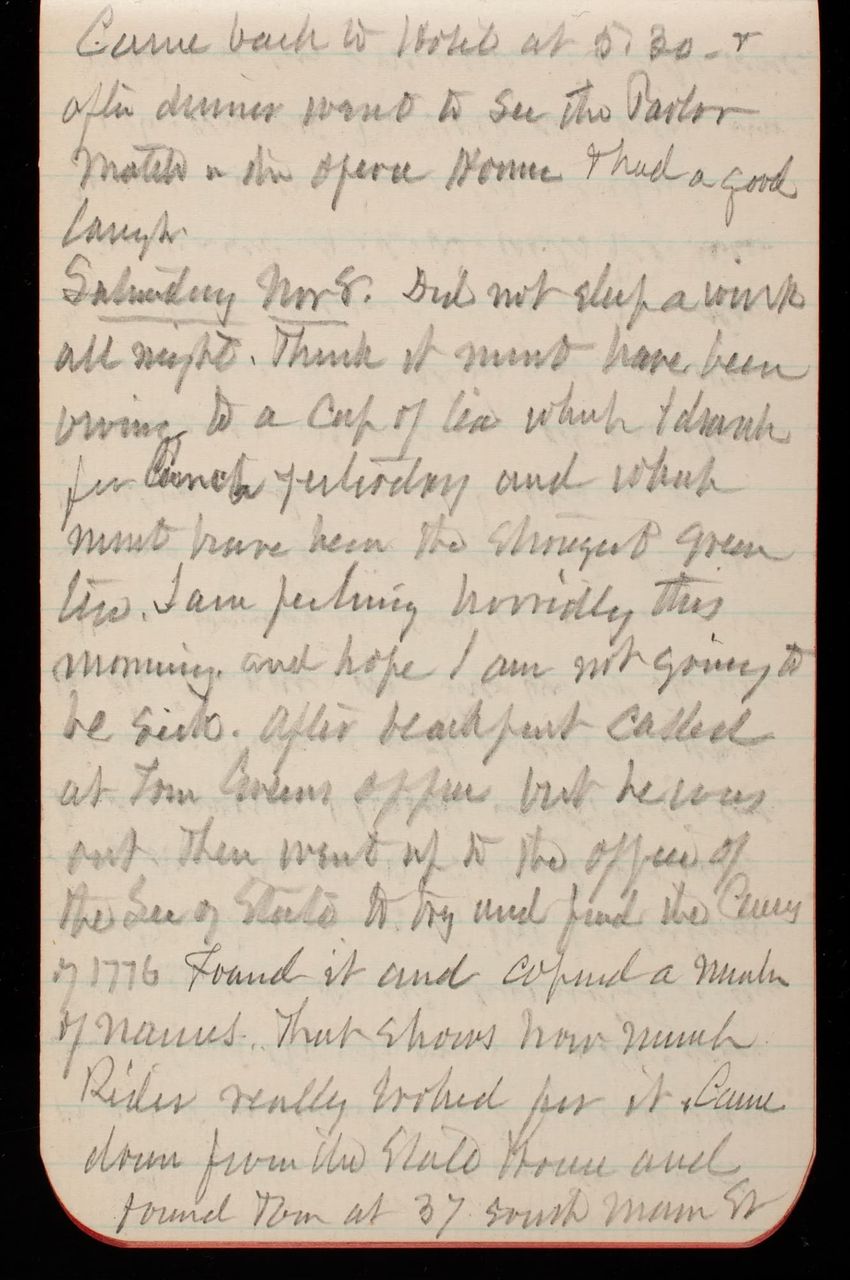 Came back to Hotel at 5:30 - &
after dinner went to see the Parlor
Match in the Opera House & had a good
laugh.
Saturday Nov 8. Did not sleep a wink
all night. Think it must have been
owing to a cup of tea which I drank
for lunch yesterday and which
must have been the strongest green
tea. I am feeling horridly this
morning. and hope I am not going to
be sick. After breakfast called
at Tom Greens office but he was
out. Then went up to the office of
the Sec of State to try and find the Census
of 1776 Found it and copied a number
of names. That shows how much
Rider really looked for it. Came
down from the State House and
found Tom at 37 South Main St